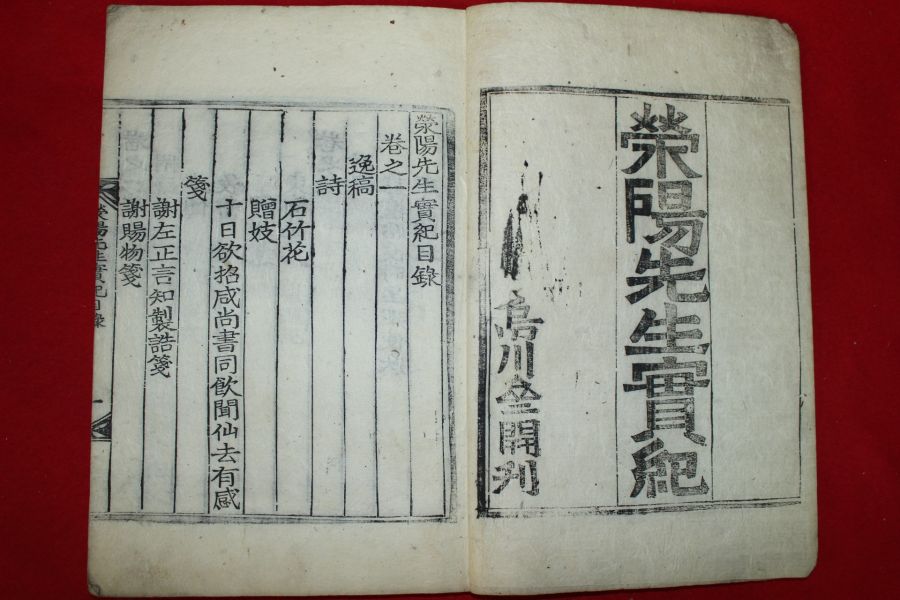 滎陽先生實紀
烏川㙜開刋
滎陽先生實紀目錄
卷之一
逸稿
詩
石竹花
贈妓
十日欲招咸尚書同飮聞仙去有感
箋
謝左正言知製誥箋
謝賜物箋
滎陽先生實紀目錄